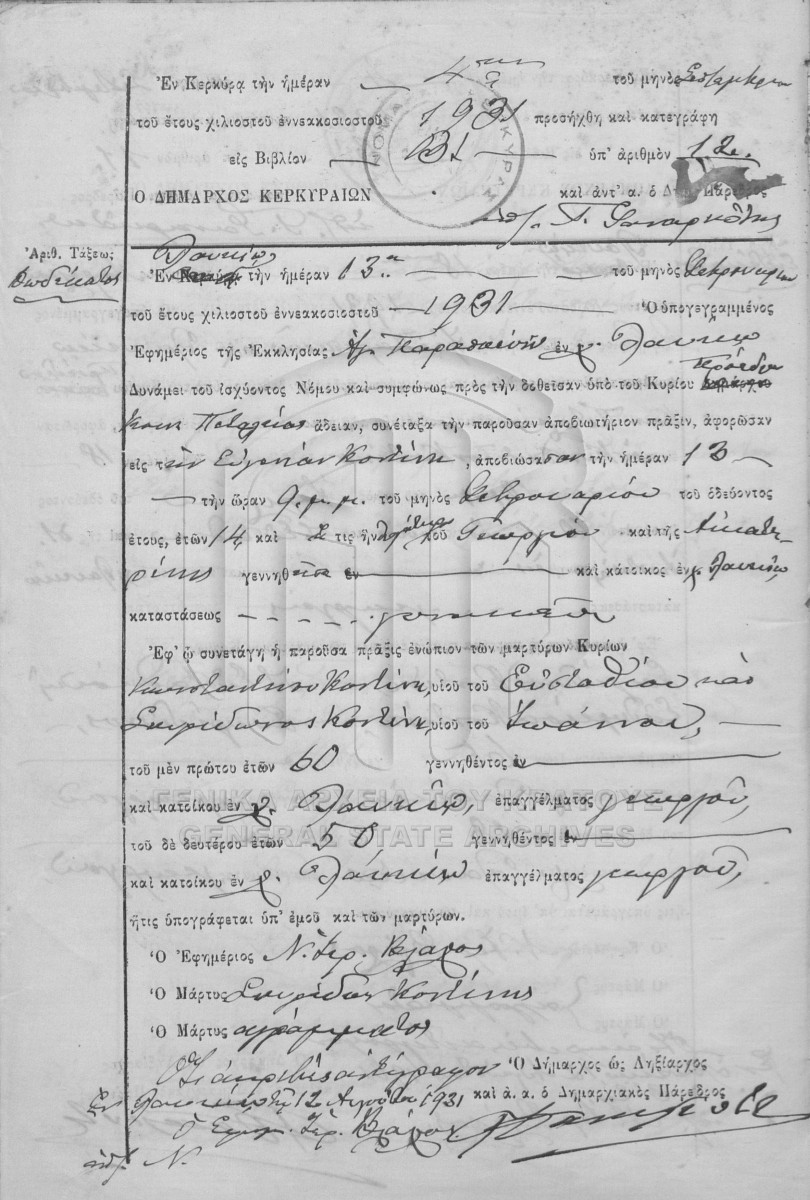 Ἐν Κερκύρᾳ τὴν ἡμέραν 4ην τοῦ μηνὸς
τοῦ ἔτους χιλιοστοῦ ἐννεακοσιοστοῦ 1931 προσήχθη καὶ κατεγράφη
εἰς Βιβλίον ὑπ' ἀριθμὸν 12.
Ο ΔΗΜΑΡΧΟΣ ΚΕΡΚΥΡΑΙΩΝ καὶ ἀντ' α. ὁ Δημ. Πάρεδρος
Ἀριθ. Τάξεως
Δωδέκατος
Ἐν τὴν ἡμέραν 13η τοῦ μηνὸς Φεβρουαρίου
τοῦ ἔτους χιλιοστοῦ ἐννεακοσιοστοῦ 1931 Ὁ ὑπογεγραμμένος
Ἐφημέριος τῆς Ἐκκλησίας Ἁγ. Παρασκευῆς ἐν χ.
Δυνάμει τοῦ ἰσχύοντος Νόμου καὶ συμφώνως πρὸς τὴν δοθεῖσαν ὑπὸ τοῦ Κυρίου Προέδρου
Κοιν. ἄδειαν, συνέταξα τὴν παροῦσαν ἀποβιωτήριον πρᾶξιν, ἀφορῶσαν
εἰς τὴν Εὐγενίαν Κοντίνη, ἀποβιώσασαν τὴν ἡμέραν 13
τὴν ὥραν 9 μ.μ. τοῦ μηνὸς Φεβρουαρίου τοῦ ὁδεύοντος
ἔτους, ἐτῶν 14 καὶ τις ἦν θυγάτηρ τοῦ Γεωργίου καὶ τῆς Αἰκατε-
ρίνης γεννηθ ἐν καὶ κάτοικος ἐν χ.
καταστάσεως
Ἐφ' ᾧ συνετάγη ἡ παροῦσα πρᾶξις ἐνώπιον τῶν μαρτύρων Κυρίων
Κωνσταντίνου Κοντίνη, υἱοῦ τοῦ Εὐσταθίου καὶ
Σπυρίδωνος Κοντίνη, υἱοῦ τοῦ Ἰωάννου,
τοῦ μὲν πρώτου ἐτῶν 60 γεννηθέντος ἐν
καὶ κατοίκου ἐν χ. ἐπαγγέλματος γεωργοῦ,
τοῦ δὲ δευτέρου ἐτῶν 50 γεννηθέντος ἐν
καὶ κατοίκου ἐν χ. ἐπαγγέλματος γεωργοῦ,
ἥτις ὑπογράφεται ὑπ' ἐμοῦ καὶ τῶν μαρτύρων.
Ὁ Ἐφημέριος Ν. Ἱερ. Βλάχος
Ὁ Μάρτυς Σπυρίδων Κοντίνης
Ὁ Μάρτυς ἀγράμματος
Ὁ Δήμαρχος ὡς Ληξίαρχος
Ἐν τῇ 12 Αὐγούστου 1931 καὶ ἀ. α. ὁ Δημαρχιακὸς Πάρεδρος
Ὁ Ἐφημ. Ἱερ. Βλάχος
ΓΕΝΙΚΑ ΑΡΧΕΙΑ ΤΟΥ ΚΡΑΤΟΥΣ
GENERAL STATE ARCHIVES